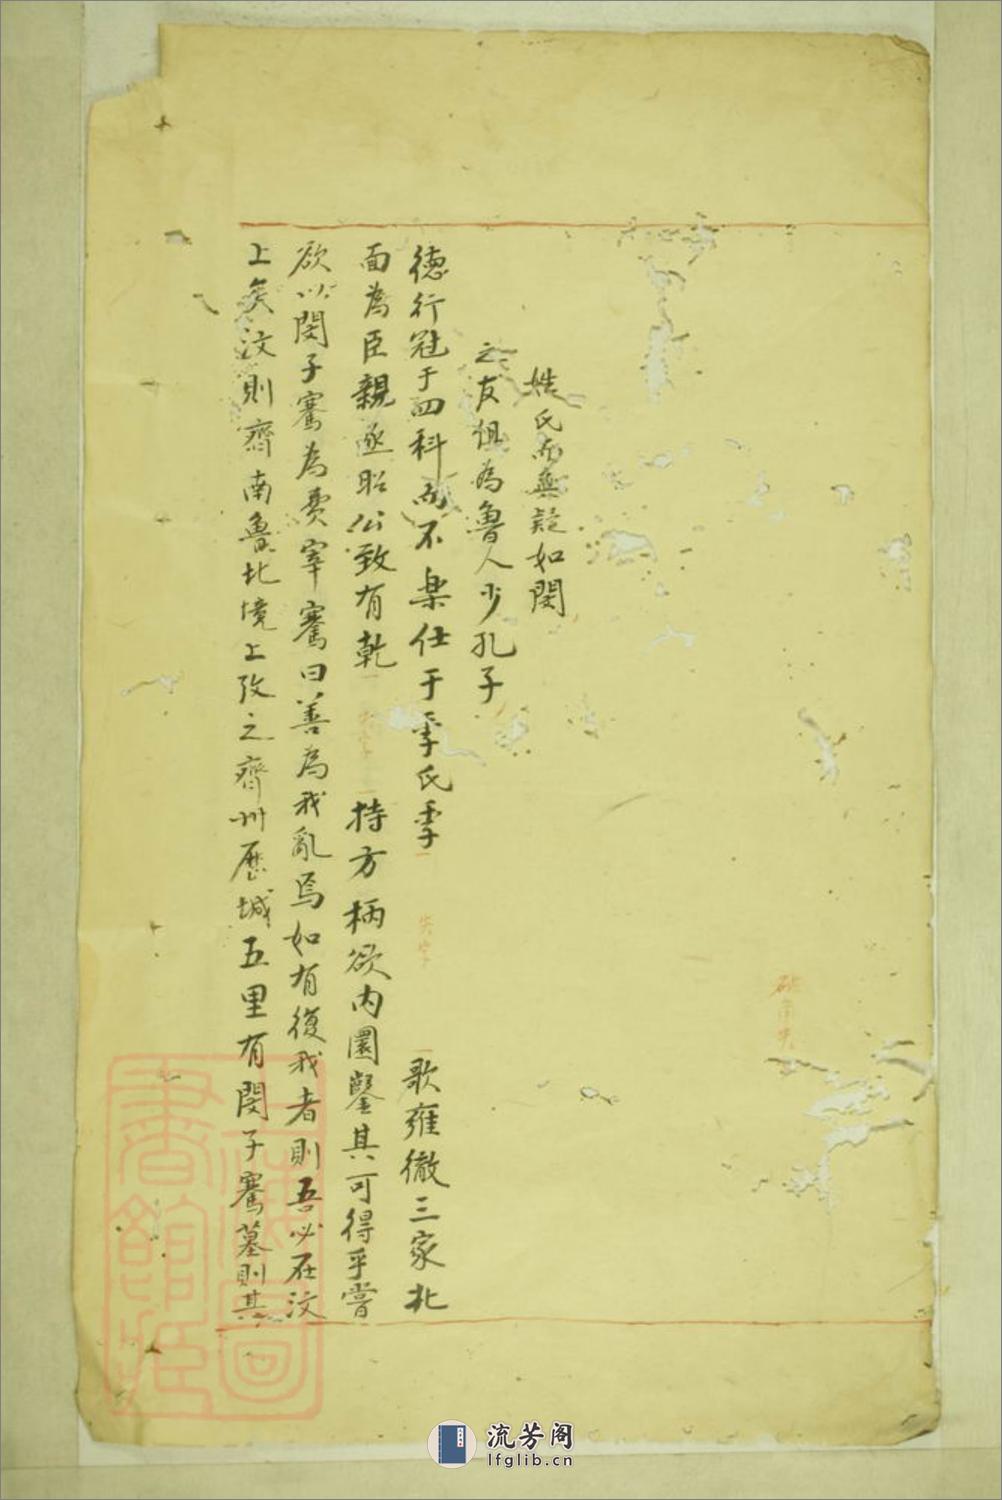 姓氏而無疑如閔
之友俱為魯人少孔子
德行冠于四科而不楽仕于季氏季 失字 歌雍徹三家北
面為臣親逐昭公致有乾 失字 持方柄欲内圜鑿其可得乎嘗
欲以閔子騫為費宰騫曰善為我亂焉如有復我者則吾必在汶
上矣汶則齊南魯北境上攷之齊州歷城五里有閔子騫墓則其
流芳阁
lfglib.cn